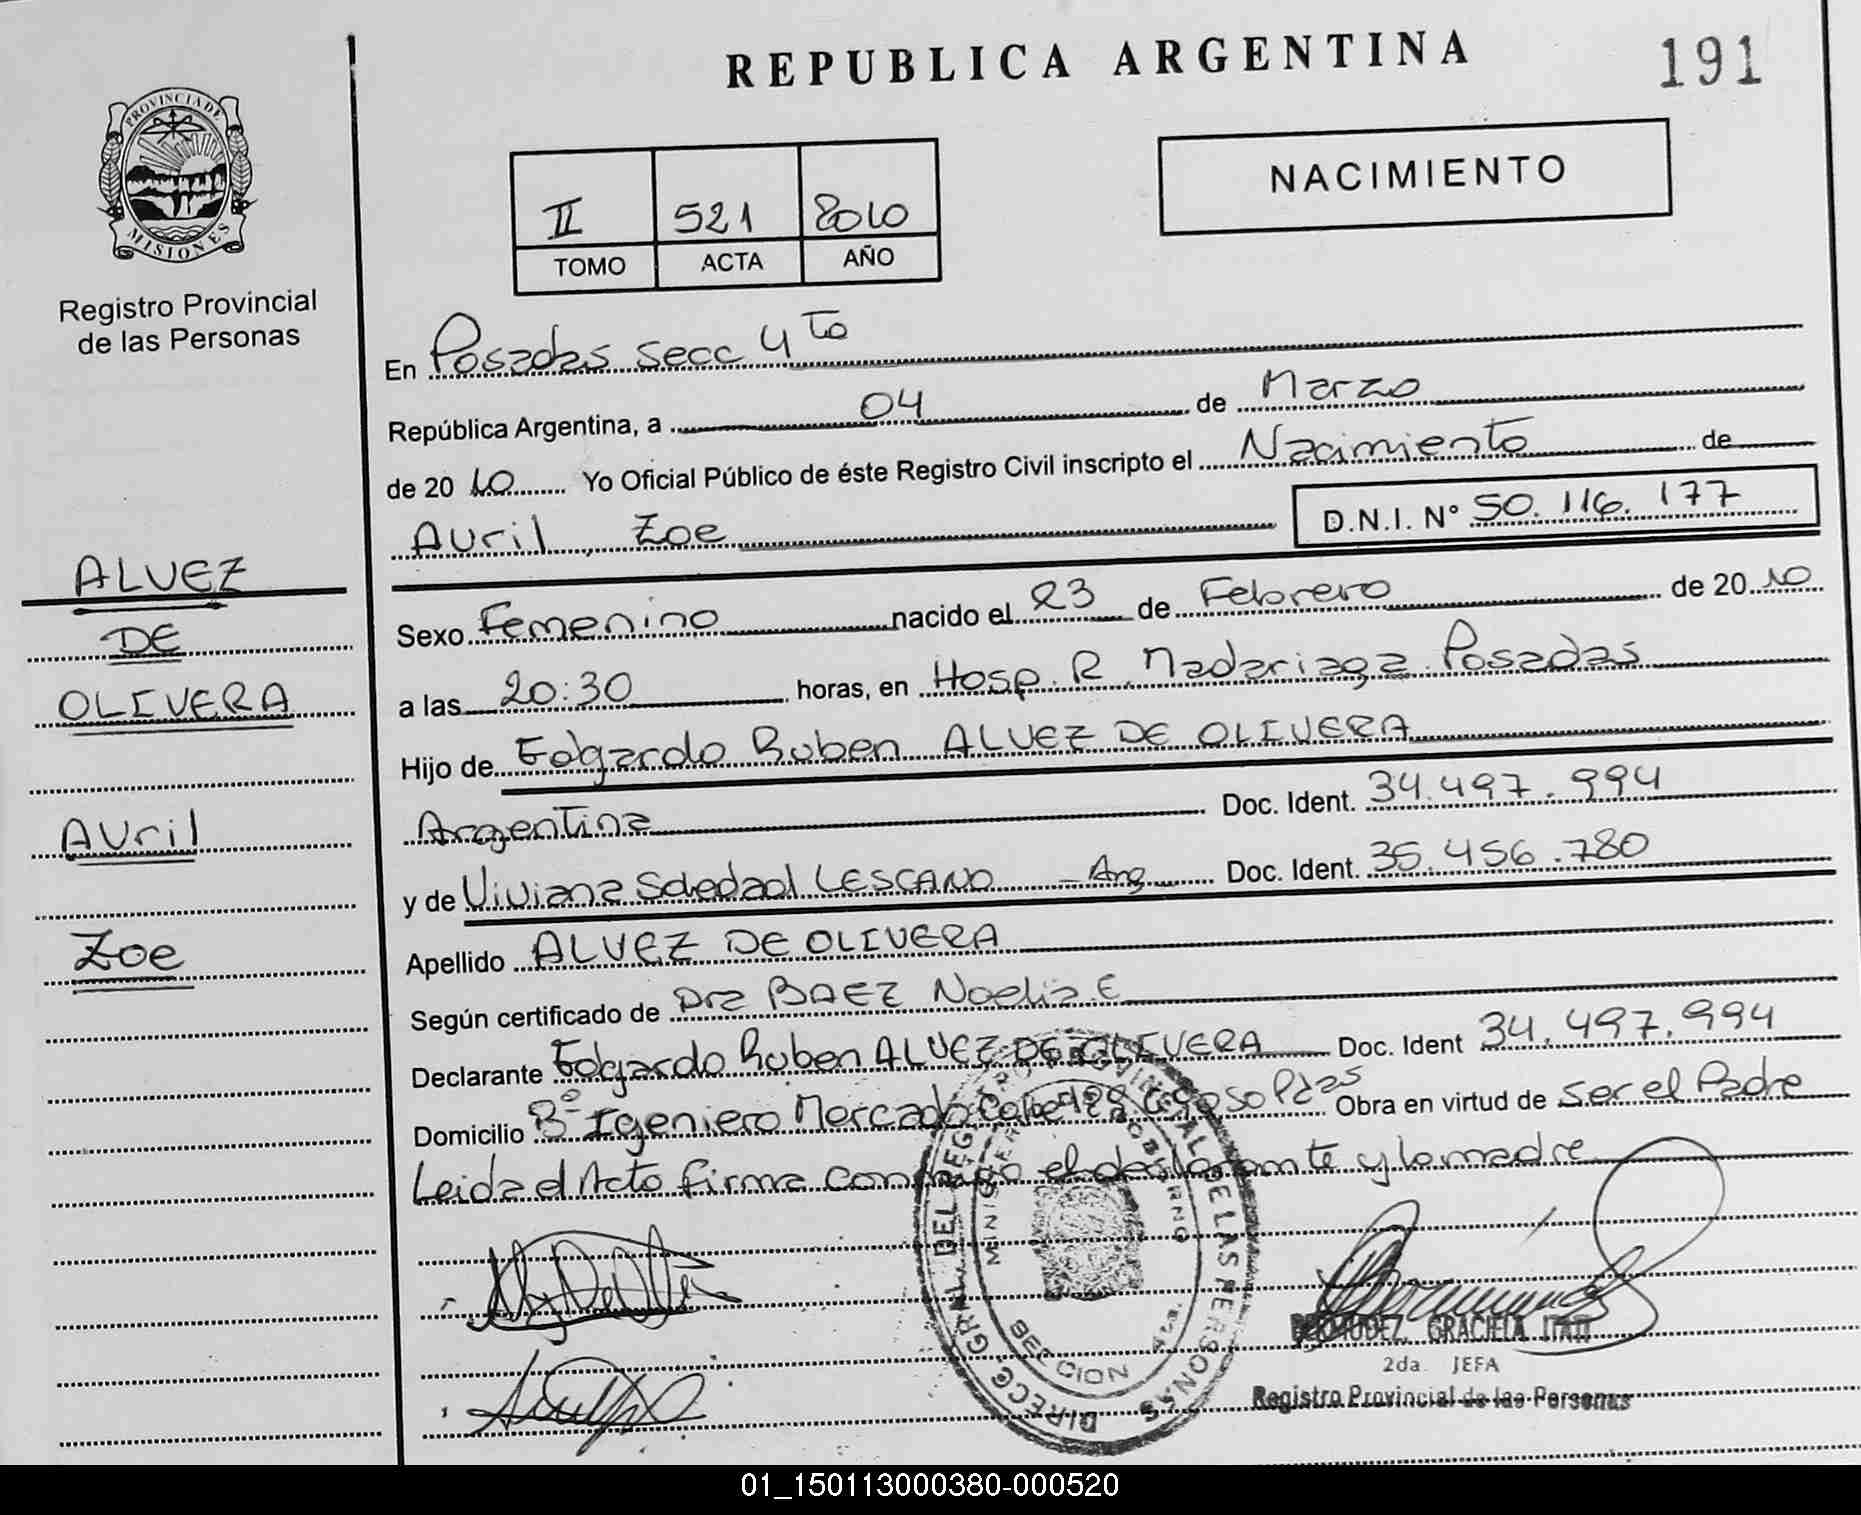 REPUBLICA ARGENTINA
191
PROVINCIA DE
MISIONES
Registro Provincial
de las Personas
NACIMIENTO
II 521 2010
TOMO ACTA AÑO
En Posadas secc 4to
República Argentina, a 04 de Marzo
de 2010 Yo Oficial Público de éste Registro Civil inscripto el Nacimiento de
Avril, Zoe D.N.I. N° 50.116.177
ALVEZ
DE
OLIVERA
Avril
Zoe
Sexo Femenino nacido el 23 de Febrero de 2010
a las 20:30 horas, en Hosp. R. Madariaga Posadas
Hijo de Edgardo Ruben ALVEZ DE OLIVERA
Argentina Doc. Ident. 34.497.994
y de Viviana Soledad LESCANO - Arg Doc. Ident. 35.456.780
Apellido ALVEZ DE OLIVERA
Según certificado de Dra BAEZ Noelia E
Declarante Edgardo Ruben ALVEZ DE OLIVERA Doc. Ident 34.497.994
Domicilio B° Igeniero Mercado Calle Pdas Obra en virtud de ser el Padre
Leida el Acto firma conmigo el declarante y la madre
DIRECC. GRAL. DEL REG. PROVINCIAL DE LAS PERSONAS
SECCION 4ta.
BERMUDEZ, GRACIELA ITATI
2da. JEFA
Registro Provincial de las Personas
01_150113000380-000520